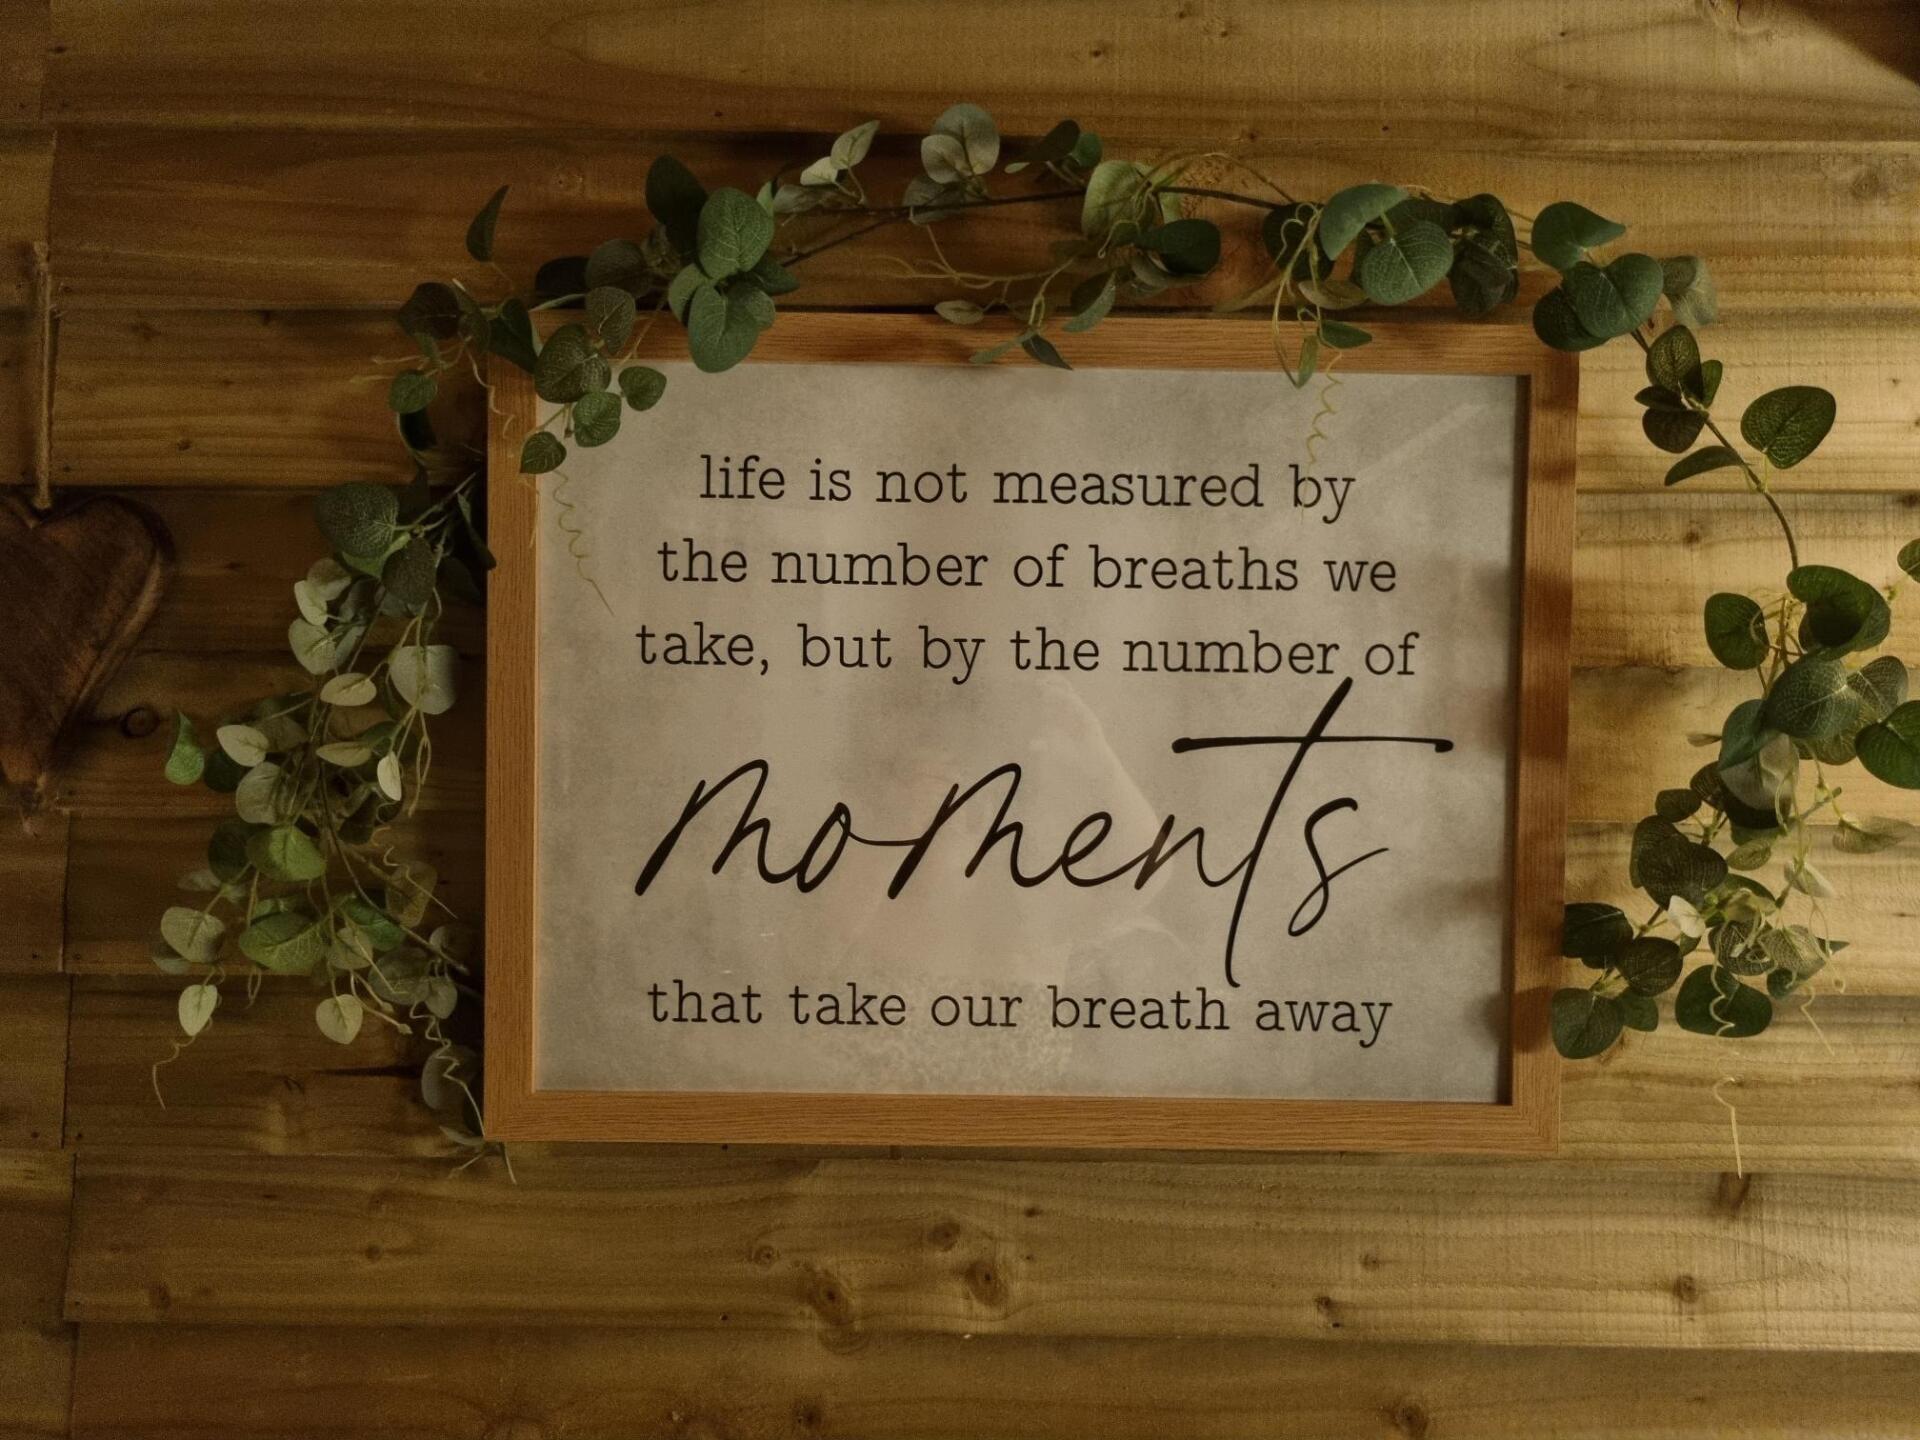 life is not measured by
the number of breaths we
take, but by the number of
moments
that take our breath away